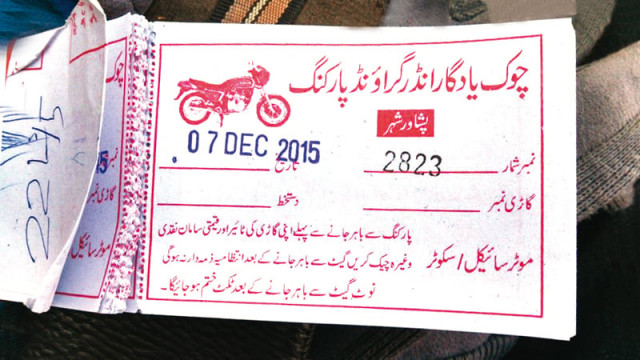 چوک یادگار انڈر گراؤنڈ پارکنگ
پشاور شہر
07 DEC 2015
نمبر شمار 2823 تاریخ
گاڑی نمبر دستخط
موٹر سائیکل / سکوٹر
پارکنگ سے باہر جانے سے پہلے اپنی گاڑی کی ٹائیر اور قیمتی سامان نقدی
وغیرہ چیک کریں گیٹ سے باہر جانے کے بعد انتظامیہ ذمہ دار نہ ہوگی
نوٹ گیٹ سے باہر جانے کے بعد ٹکٹ ختم ہو جائیگا۔
چوک
نمبر
15
گاڑی نمبر
موٹر سائیکل
2245